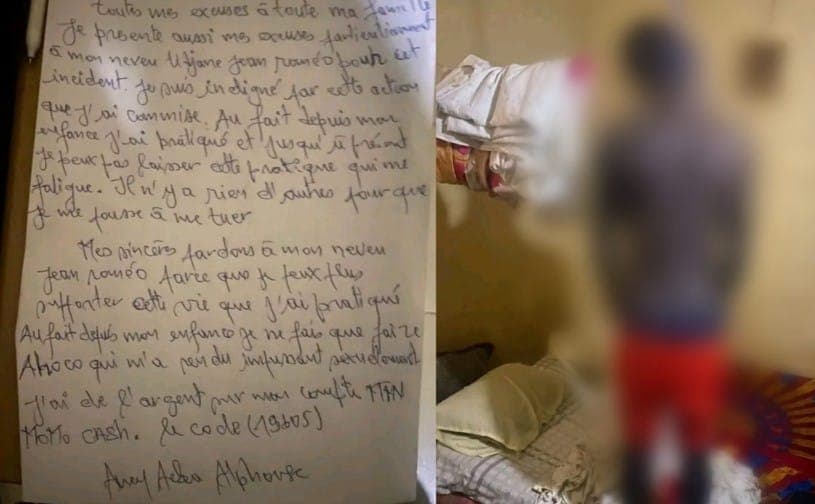 toutes mes excuses à toute ma famille
Je présente aussi mes excuses particulièrement
à mon neveu Utjane Jean roméo pour cet
incident. Je suis indigné par cette action
que j'ai commise. Au fait depuis mon
enfance j'ai pratiqué et jusqu'à présent
je peux pas laisser cette pratique qui me
fatigue. Il n'y a rien d'autres pour que
je me pousse à me tuer
Mes sincères pardons à mon neveu
Jean roméo parce que je peux plus
supporter cette vie que j'ai pratiqué
Au fait depuis mon enfance je ne fais que faire
Ahoco qui m'a rendu impuissant sexuellement
J'ai de l'argent sur mon compte MTN
MoMo cash. le code (19605)
Alphonse